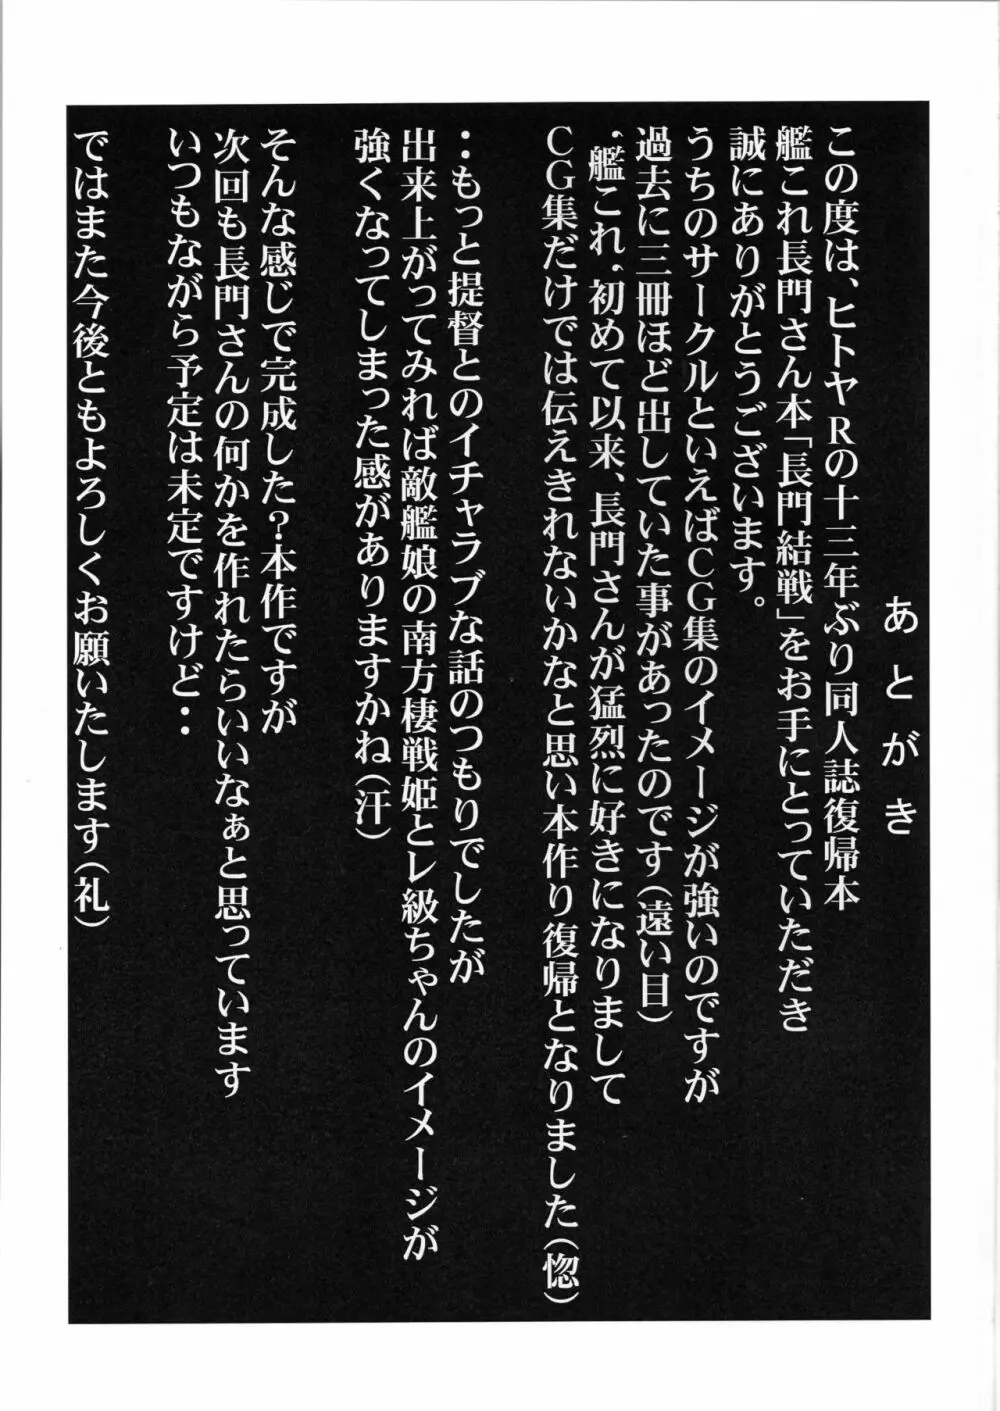 あとがき
この度は、ヒトヤRの十三年ぶり同人誌復帰本
艦これ長門さん本「長門結戦」をお手にとっていただき
誠にありがとうございます。
うちのサークルといえばCG集のイメージが強いのですが
過去に三冊ほど出していた事があったのです(遠い目)
〝艦これ〟初めて以来、長門さんが猛烈に好きになりまして
CG集だけでは伝えきれないかなと思い本作り復帰となりました(惚)
‥もっと提督とのイチャラブな話のつもりでしたが
出来上がってみれば敵艦娘の南方棲戦姫とレ級ちゃんのイメージが
強くなってしまった感がありますかね(汗)
そんな感じで完成した?本作ですが
次回も長門さんの何かを作れたらいいなぁと思っています
いつもながら予定は未定ですけど‥
ではまた今後ともよろしくお願いたします(礼)